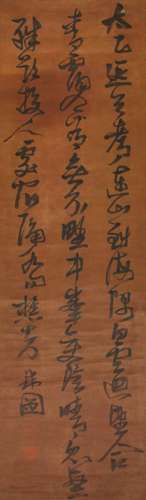 太乙近天都連山到海隅白雲迴望合
青靄入看無分野中峰變陰晴眾壑
殊欲投人處宿隔水問樵夫